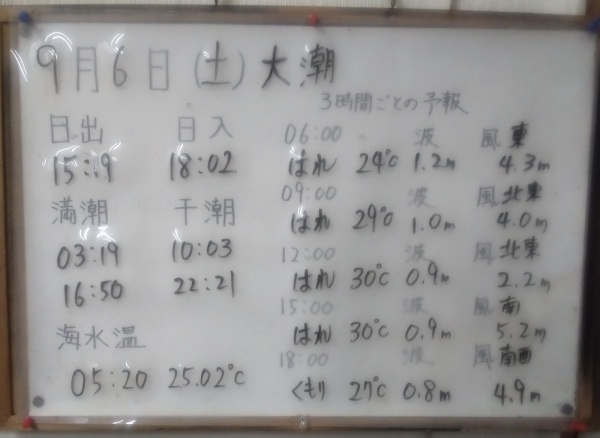 9月6日(土)大潮
日出 日入
15:19 18:02
満潮 干潮
03:19 10:03
16:50 22:21
海水温
05:20 25.02℃
3時間ごとの予報
06:00 波 風東
はれ 24℃ 1.2m 4.3m
09:00 波 風北東
はれ 29℃ 1.0m 4.0m
12:00 波 風北東
はれ 30℃ 0.9m 2.2m
15:00 波 風南
はれ 30℃ 0.9m 5.2m
18:00 波 風南西
くもり 27℃ 0.8m 4.9m